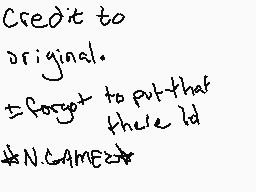 Credit to
original.
I forgot to put that
there ld
★N.GAMEz★